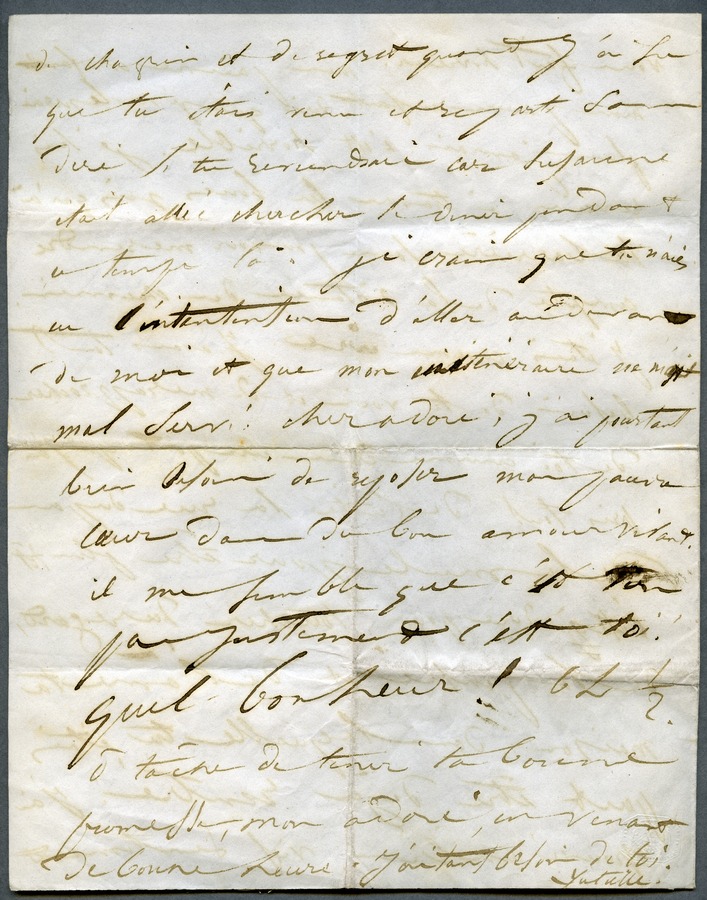 de chagrin et de regret quand j'ai su
que tu étais venu et reparti sans
dire si tu reviendrais car Susanne
était allée chercher le diner pendant
ce temps là. je crain que tu n'aies
eu l'intention d'aller audevant
de moi et que mon itinéraire ne m'ait
mal servi. cher adoré, j'ai pourtant
bien besoin de reposer mon pauvre
cœur dans du bon amour vivant.
il me semble que c'est ton
pas justement c'est toi!
quel bonheur! 6h ½.
ô tâche de tenir ta bonne
promesse, mon adoré, en venant
de bonne heure. J'ai tant besoin de toi.
Juliette.